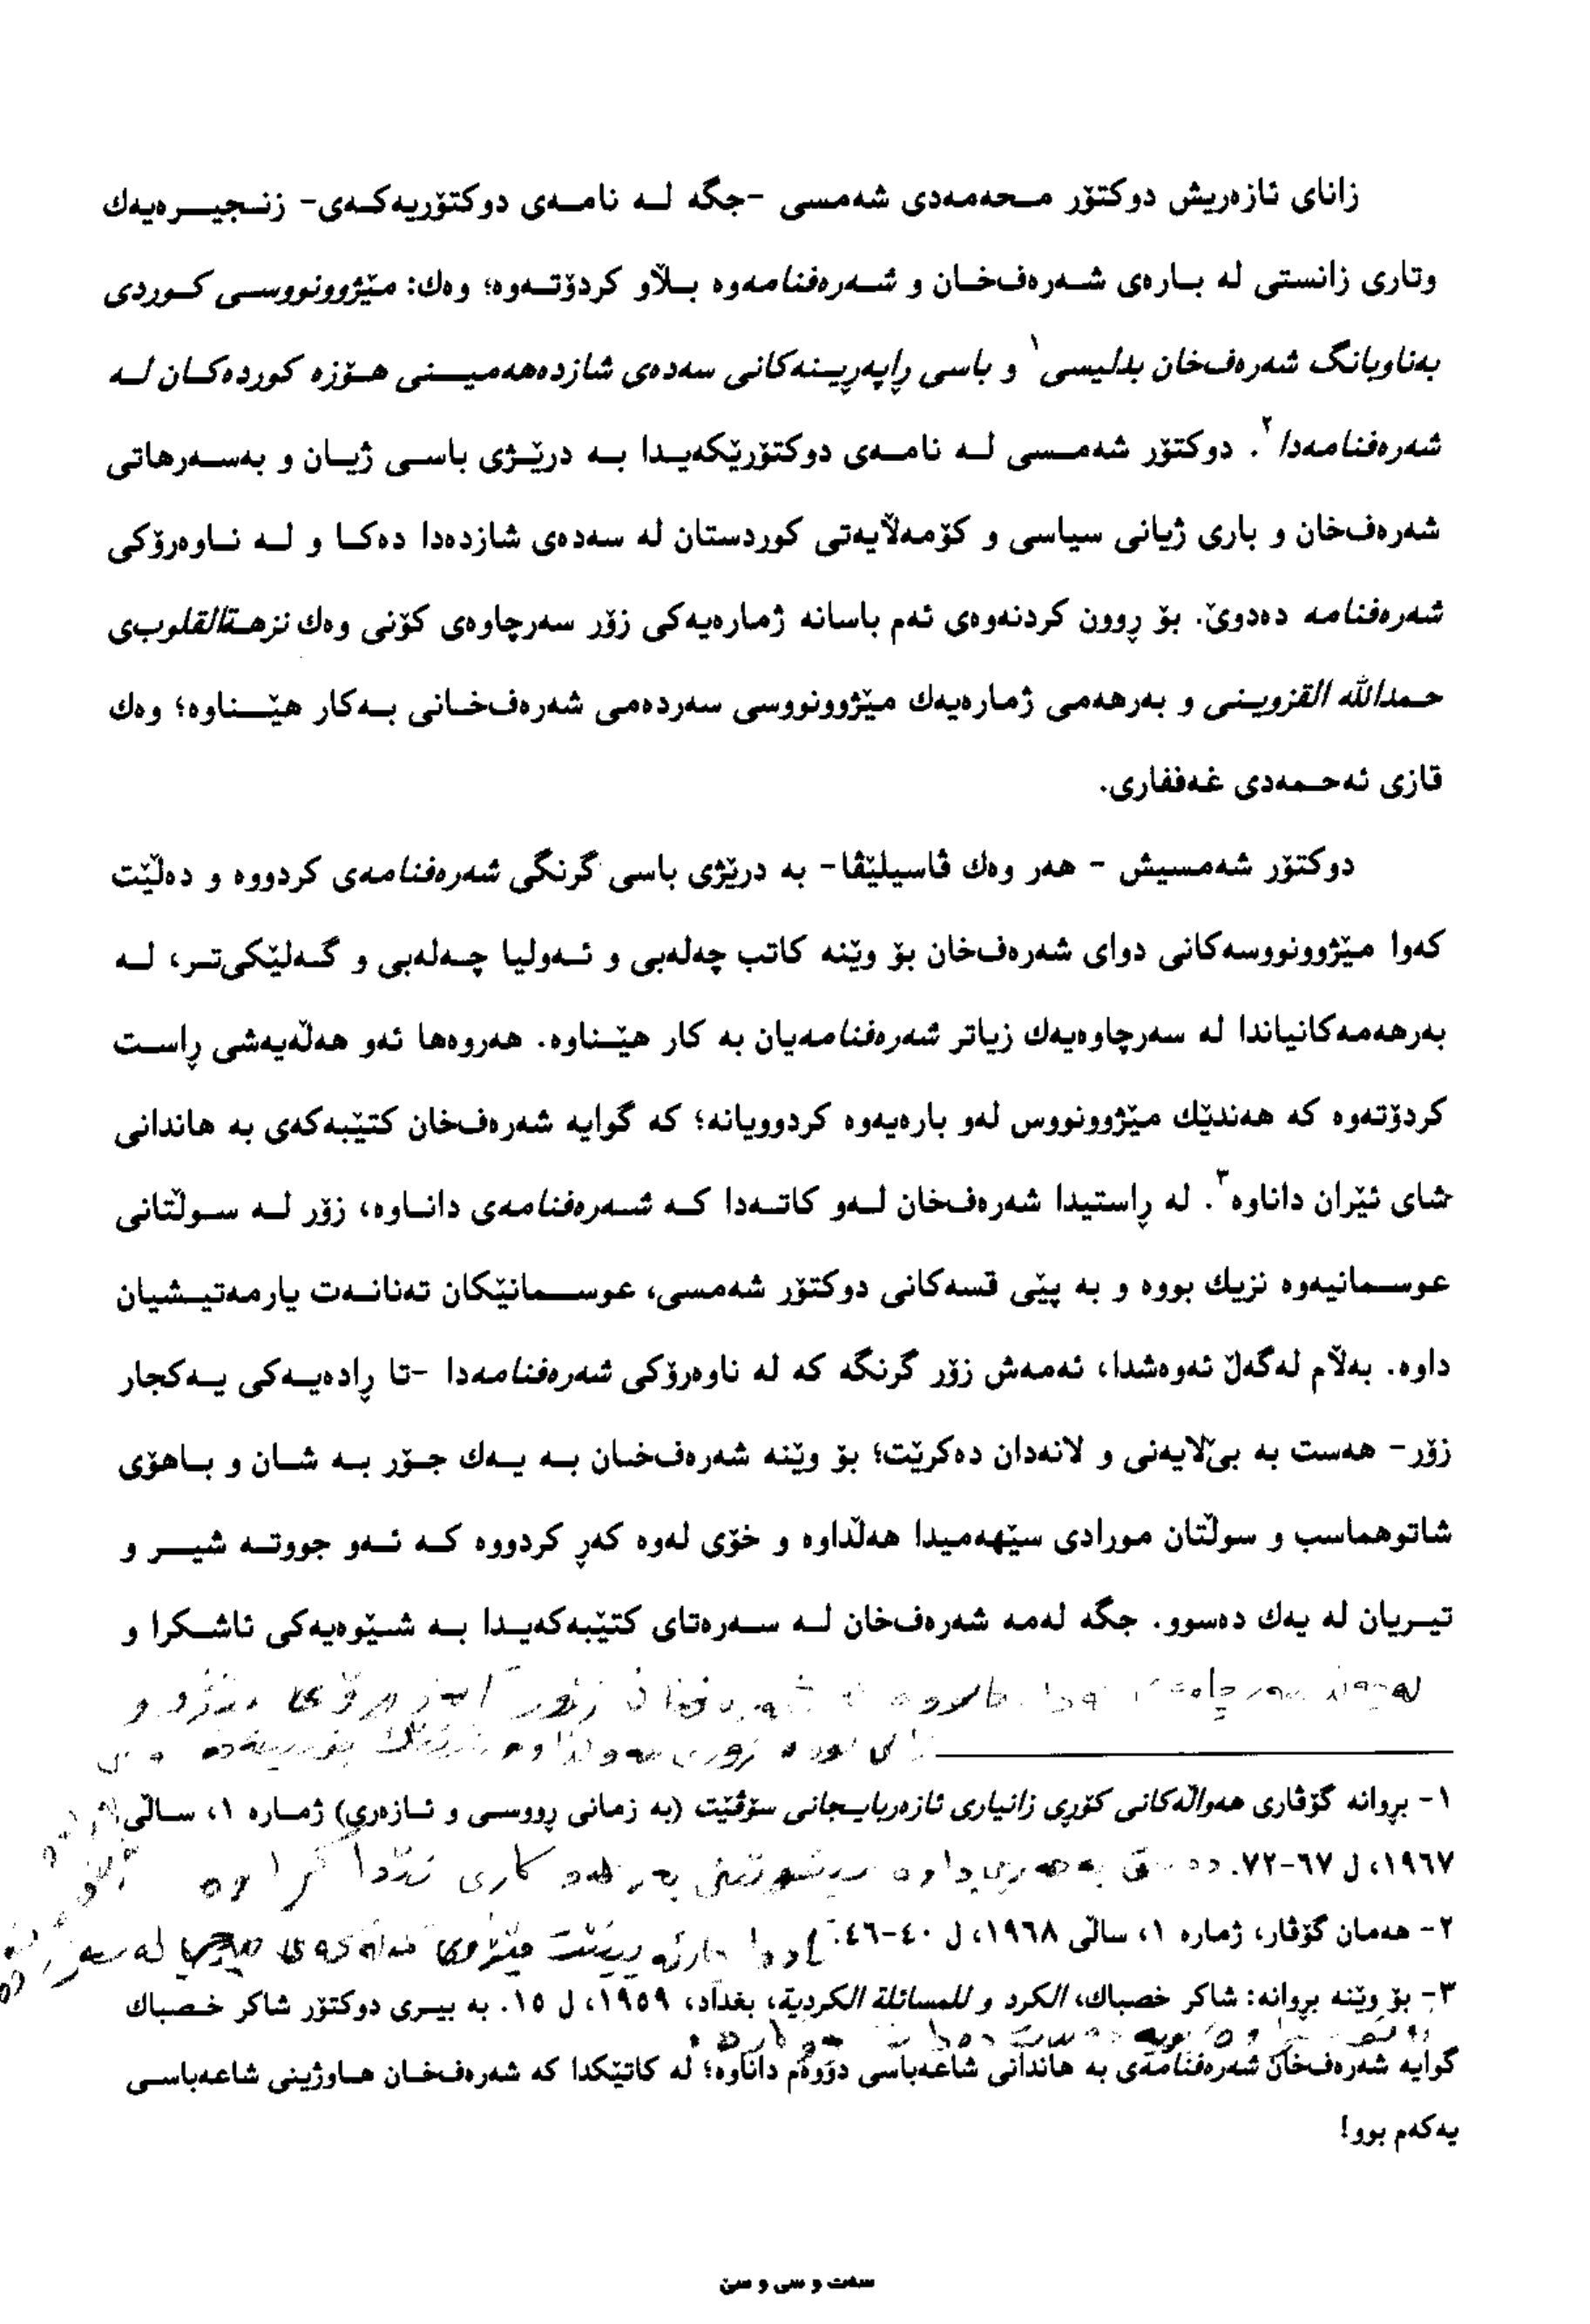 زانای ئازەریش دوکتۆر محەمەدی شەمسی -جگە لە نامەی دوکتۆریەکەی- زنجیرەیەك
وتاری زانستی لە بارەی شەرەفخان و شەرەفنامەوە بڵاو کردۆتەوە؛ وەك: مێژوونووسی کوردی
بەناوبانگ شەرەفخان بدلیسی١ و باسی ڕاپەڕینەکانی سەدەی شازدەهەمینی هۆزە کوردەکان لە
شەرەفنامەدا٢. دوکتۆر شەمسی لە نامەی دوکتۆرێکەیدا بە درێژی باسی ژیان و بەسەرهاتی
شەرەفخان و باری ژیانی سیاسی و کۆمەڵایەتی کوردستان لە سەدەی شازدەدا دەکا و لە ناوەرۆکی
شەرەفنامە دەدوێ. بۆ ڕوون کردنەوەی ئەم باسانە ژمارەیەکی زۆر سەرچاوەی کۆنی وەك نزهتالقلوب‌ی
حمدالله القزوینی و بەرهەمی ژمارەیەك مێژوونووسی سەردەمی شەرەفخانی بەکار هێناوە؛ وەك
قازی ئەحمەدی غەففاری.
دوکتۆر شەمسیش - هەر وەك ڤاسیلێڤا- بە درێژی باسی گرنگی شەرەفنامەی کردووە و دەڵێت
کەوا مێژوونووسەکانی دوای شەرەفخان بۆ وێنە کاتب چەلەبی و ئەولیا چەلەبی و گەلێکی‌تر، لە
بەرهەمەکانیاندا لە سەرچاوەیەك زیاتر شەرەفنامەیان بە کار هێناوە. هەروەها ئەو هەڵەیەشی ڕاست
کردۆتەوە کە هەندێك مێژوونووس لەو بارەیەوە کردوویانە؛ کە گوایە شەرەفخان کتێبەکەی بە هاندانی
شای ئێران داناوە٣. لە ڕاستیدا شەرەفخان لەو کاتەدا کە شەرەفنامەی داناوە، زۆر لە سوڵتانی
عوسمانیەوە نزیك بووە و بە پێی قسەکانی دوکتۆر شەمسی، عوسمانێکان تەنانەت یارمەتیشیان
داوە. بەڵام لەگەڵ ئەوەشدا، ئەمەش زۆر گرنگە کە لە ناوەرۆکی شەرەفنامەدا -تا ڕادەیەکی یەکجار
زۆر- هەست بە بێ‌لایەنی و لانەدان دەکرێت؛ بۆ وێنە شەرەفخان بە یەك جۆر بە شان و باهۆی
شاتوهماسب و سوڵتان مورادی سێهەمیدا هەڵداوە و خۆی لەوە کەڕ کردووە کە ئەو جووتە شیر و
تیریان لە یەك دەسوو. جگە لەمە شەرەفخان لە سەرەتای کتێبەکەیدا بە شێوەیەکی ئاشکرا و
١- بڕوانە گۆڤاری هەواڵەکانی کۆڕی زانیاری ئازەربایجانی سۆڤێت (بە زمانی ڕووسی و ئازەری) ژمارە ١، ساڵی
١٩٦٧، ل ٦٧-٧٢.
٢- هەمان گۆڤار، ژمارە ١، ساڵی ١٩٦٨، ل ٤٠-٤٦.
٣- بۆ وێنە بڕوانە: شاکر خصباك، الکرد و للمسائلة الکردیة، بغداد، ١٩٥٩، ل ١٥. بە بیری دوکتۆر شاکر خصباك
گوایە شەرەفخان شەرەفنامەی بە هاندانی شاعەباسی دووەم داناوە؛ لە کاتێکدا کە شەرەفخان هاوژینی شاعەباسی
یەکەم بوو!
سەت و سی و سێ